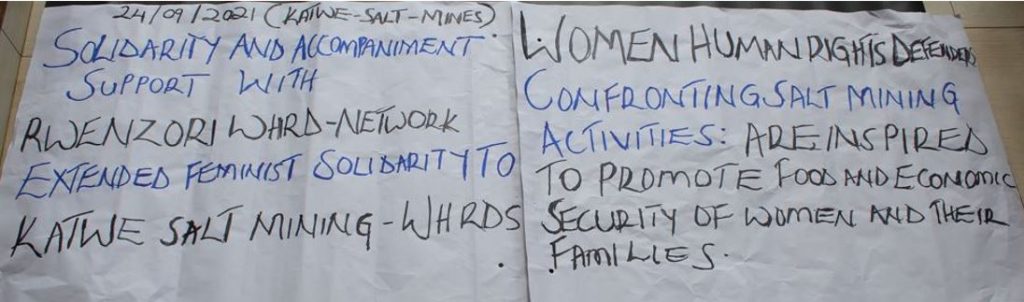 24/09/2021 (KATWE-SALT-MINES)
SOLIDARITY AND ACCOMPANIMENT
SUPPORT WITH
RWENZORI WHRD-NETWORK
EXTENDED FEMINIST SOLIDARITY TO
KATWE SALT MINING-WHRDS
WOMEN HUMAN RIGHTS DEFENDERS
CONFRONTING SALT MINING
ACTIVITIES: ARE INSPIRED
TO PROMOTE FOOD AND ECONOMIC
SECURITY OF WOMEN AND THEIR
FAMILIES.